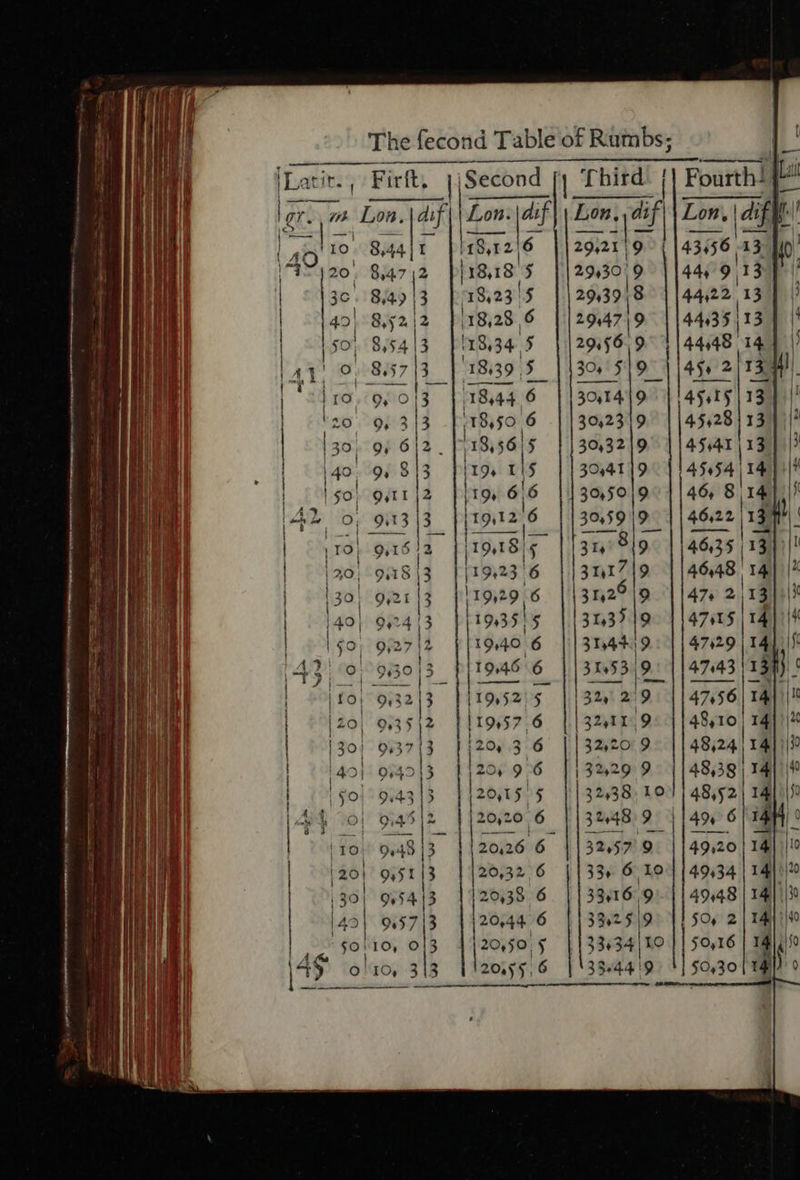 The ſecond Table of Rumbs;
Latit., Firſt. Second Third Fourth
gr. m Lon. dif Lon. dif Lon. dif Lon. dif
40 10 8,44 1 18,12 6 29,21 9 43,56 13
20 8,47 2 18,18 5 29,30 9 44, 9 13
30 8,49 3 18,23 5 29,39 8 44,22 13
40 8,52 2 18,28 6 29,47 9 44,35 13
50 8,54 3 18,34 5 29,56 9 44,48 14
41 0 8,57 3 18,39 5 30, 5 9 45, 2 13
10 9, 0 3 18,44 6 30,14 9 45,15 13
20 9, 3 3 18,50 6 30,23 9 45,28 13
30 9, 6 2 18,56 5 30,32 9 45,41 13
40 9, 8 3 19, 1 5 30,41 9 45,54 14
50 9,11 2 19, 6 6 30,50 9 46, 8 14
42 0 9,13 3 19,12 6 30,59 9 46,22 13
10 9,16 2 19,18 5 31, 8 9 46,35 13
20 9,18 3 19,23 6 31,17 9 46,48 14
30 9,21 3 19,29 6 31,26 9 47, 2 13
40 9,24 3 19,35 5 31,35 9 47,15 14
50 9,27 2 19,40 6 31,44 9 47,29 14
43 0 9,30 3 19,46 6 31,53 9 47,43 13
10 9,32 3 19,52 5 32, 2 9 47,56 14
20 9,35 2 19,57 6 32,11 9 48,10 14
30 9,37 3 20, 3 6 32,20 9 48,24 14
40 9,40 3 20, 9 6 32,29 9 48,38 14
50 9,43 3 20,15 5 32,38 10 48,52 14
44 0 9,46 2 20,20 6 32,48 9 49, 6 14
10 9,48 3 20,26 6 32,57 9 49,20 14
20 9,51 3 20,32 6 33, 6 10 49,34 14
30 9,54 3 20,38 6 33,16 9 49,48 14
40 9,57 3 20,44 6 33,25 9 50, 2 14
50 10, 0 3 20,50 5 33,34 10 50,16 14
45 0 10, 3 3 20,55 6 33,44 9 50,30 14